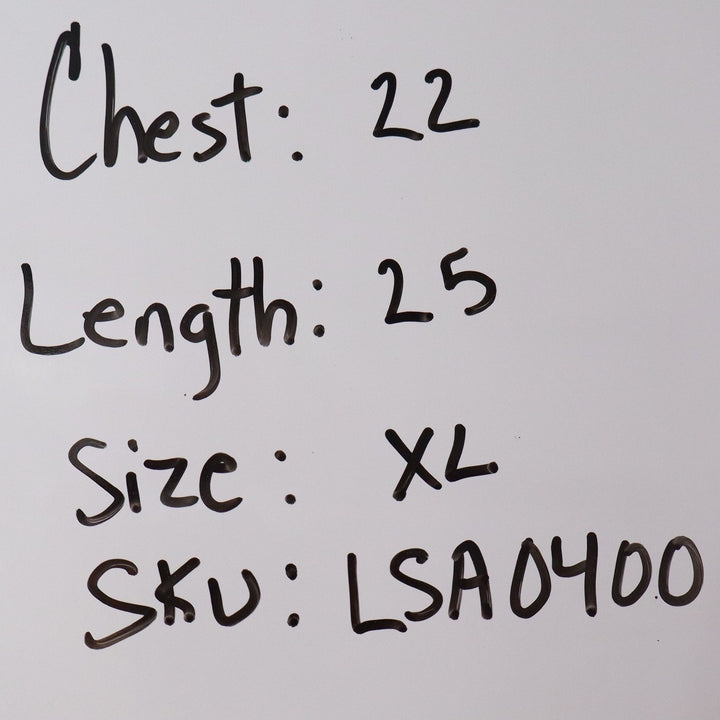 Chest: 22
Length: 25
Size: XL
SKU: LSA0400